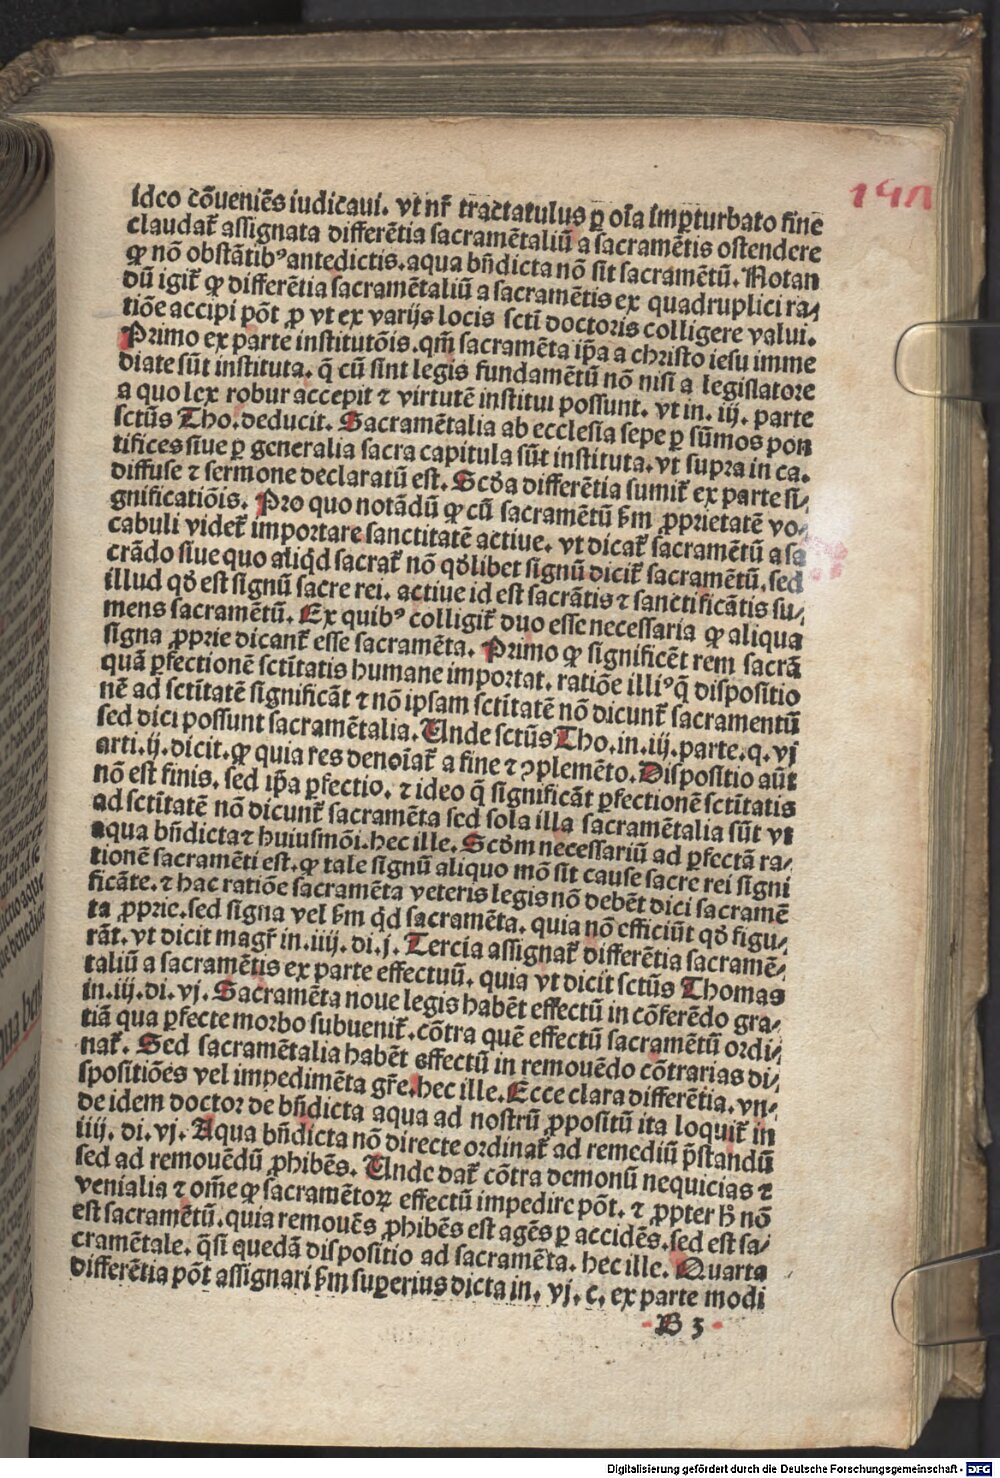 ideo cōueniēs iudicaui. vt nr̄ tractatulus ꝑ oīa imꝑturbato fine
claudat᷑ assignata differētia sacramētaliū a sacramētis ostendere
ꝙ nō obstātibꝰ antedictis. aqua bn̄dicta nō sit sacramētū. Notan
dū igit᷑ ꝙ differētia sacramētaliū a sacramētis ex quadruplici ra⸗
tiōe accipi pōt ꝓ vt ex varijs locis sctī doctoris colligere valui.
Primo ex parte institutōis. qm̄ sacramēta ip̄a a christo iesu imme
diate sūt instituta. q̄ cū sint legis fundamētū nō nisi a legislatore
a quo lex robur accepit ⁊ virtutē institui possunt. vt in. iij. parte
sctūs Tho. deducit. Sacramētalia ab ecclesia sepe ꝑ sūmos pon
tifices siue ꝑ generalia sacra capitula sūt instituta. vt supra in ca.
diffuse ⁊ sermone declaratū est. Scd̄a differētia sumit᷑ ex parte si⸗
gnificatiōis. Pro quo notādū ꝙ cū sacramētū ẜm ꝓprietatē vo⸗
cabuli videt᷑ importare sanctitatē actiue. vt dicat᷑ sacramētū a sa
crādo siue quo aliqd̄ sacrat᷑ nō qd̄libet signū dicit᷑ sacramētū. sed
illud qd̄ est signū sacre rei. actiue id est sacrātis ⁊ sanctificātis su⸗
mens sacramētū. Ex quibꝰ colligit᷑ duo esse necessaria ꝙ aliqua
signa ꝓprie dicant᷑ esse sacramēta. Primo ꝙ significēt rem sacrā
quā ꝑfectionē sctītatis humane importat. ratiōe illiꝰ q̄ dispositio
nē ad sctītatē significāt ⁊ nō ipsam sctītatē nō dicunt᷑ sacramentū
sed dici possunt sacramētalia. Unde sctūs Tho. in. iij. parte. q. vj
arti. ij. dicit. ꝙ quia res denoīat᷑ a fine ⁊ ꝯplemēto. Dispositio aūt
nō est finis. sed ip̄a ꝑfectio. ⁊ ideo q̄ significāt ꝑfectionē sctītatis
ad sctītatē nō dicunt᷑ sacramēta sed sola illa sacramētalia sūt vt
aqua bn̄dicta ⁊ huiusmōi. hec ille. Scd̄m necessariū ad ꝑfectā ra⸗
tionē sacramēti est. ꝙ tale signū aliquo mō sit cause sacre rei signi
ficāte. ⁊ hac ratiōe sacramēta veteris legis nō debēt dici sacramē
ta ꝓprie. sed signa vel ẜm qd̄ sacramēta. quia nō efficiūt qd̄ figu⸗
rāt. vt dicit magr̄ in. iiij. di. j. Tercia assignat᷑ differētia sacramē⸗
taliū a sacramētis ex parte effectuū. quia vt dicit sctūs Thomas
in. iij. di. vj. Sacramēta noue legis habēt effectū in cōferēdo gra⸗
tiā qua ꝑfecte morbo subuenit᷑. cōtra quē effectū sacramētū ordi⸗
nat᷑. Sed sacramētalia habēt effectū in remouēdo cōtrarias di⸗
spositiōes vel impedimēta gr̄e. hec ille. Ecce clara differētia. vn⸗
de idem doctor de bn̄dicta aqua ad nostrū ꝓpositū ita loquit᷑ in
iiij. di. vj. Aqua bn̄dicta nō directe ordinat᷑ ad remediū p̄standū
sed ad remouēdū ꝓhibēs. Unde dat᷑ cōtra demonū nequicias ⁊
venialia ⁊ om̄e ꝙ sacramētoꝝ effectū impedire pōt. ⁊ ꝓpter h̄ nō
est sacramētū. quia remouēs ꝓhibēs est agēs ꝑ accidēs. sed est sa⸗
cramētale. q̄si quedā dispositio ad sacramēta. hec ille. Quarta
differētia pōt assignari ẜm suꝑerius dicta in. vj. c. ex parte modi
B 3
Digitalisierung gefördert durch die Deutsche Forschungsgemeinschaft - DFG